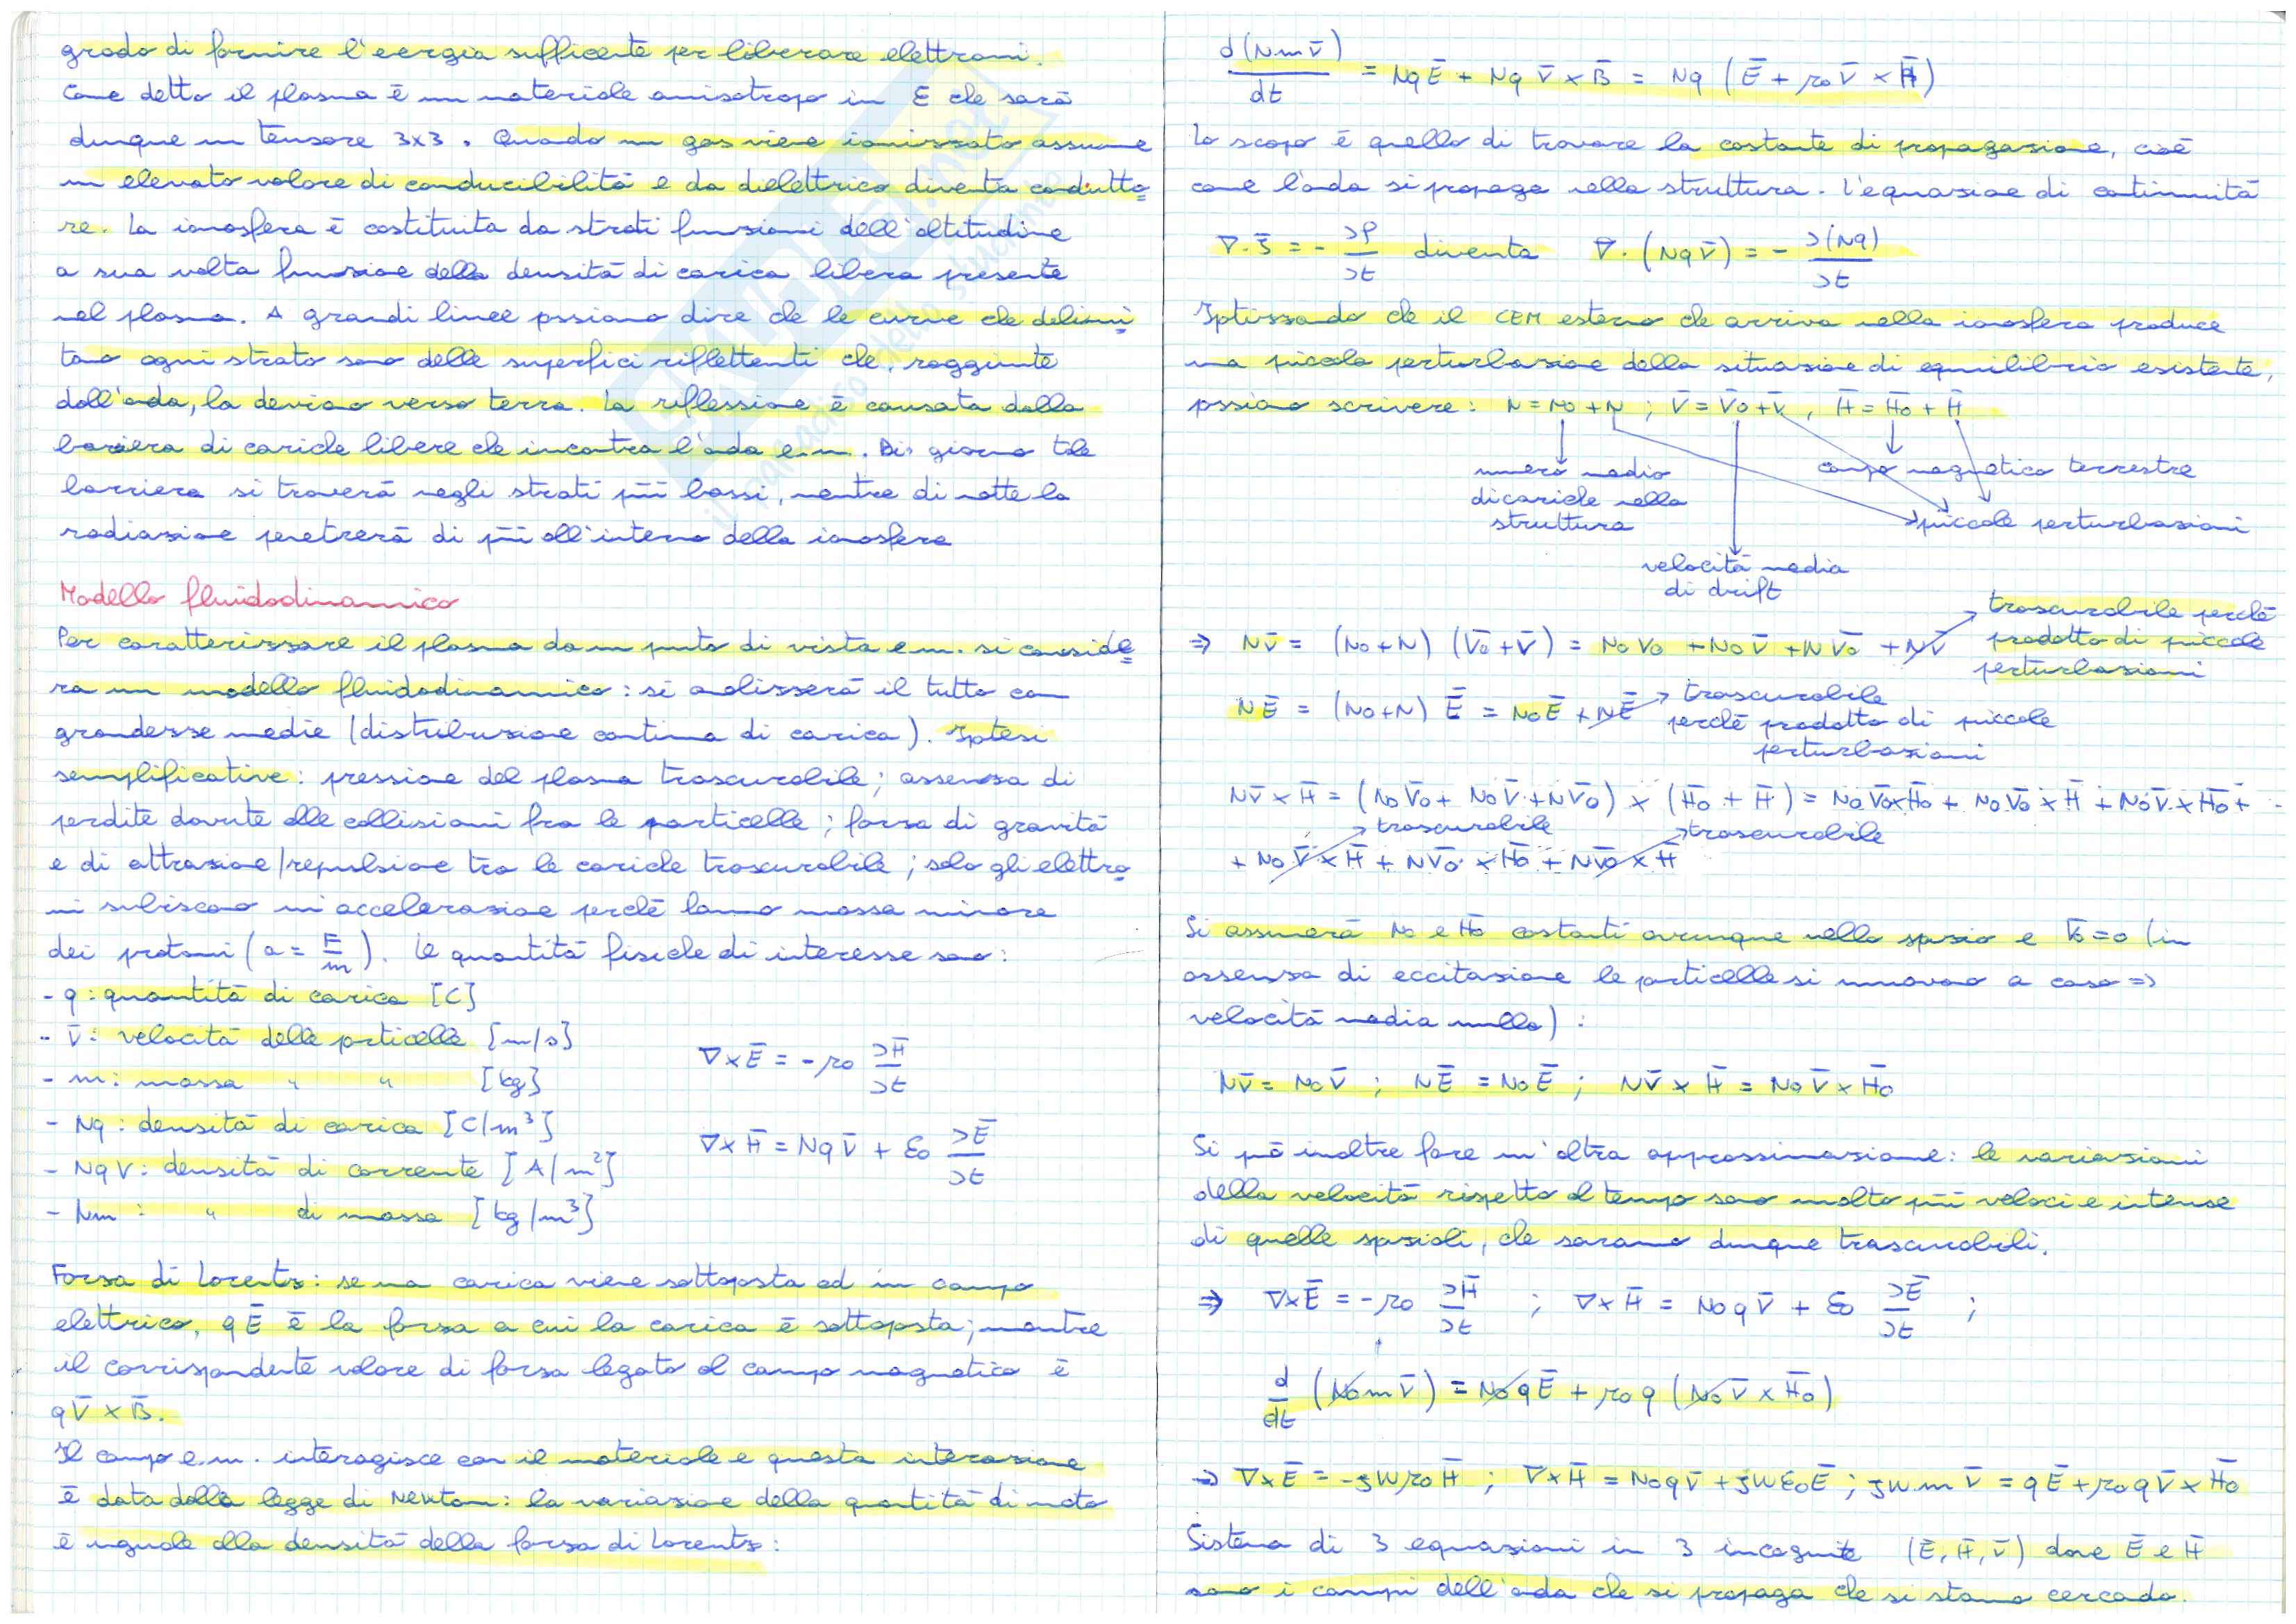 grado di fornire l'eergia sufficente per liberare elettroni.
Come detto il plasma è un materiale anisotropo in ε che sarà
dunque un tensore 3x3. Quando un gas viene ionizzato assume
un elevato valore di conducibilità e da dielettrico diventa condutto=
re. La ionosfera è costituita da strati funzioni dell'altitudine
a sua volta funzione della densità di carica libera presente
nel plasma. A grandi linee pssiamo dire che le curve che delimi=
tano ogni strato sono delle superfici riflettenti che, raggiunte
dall'onda, la deviano verso terra. La riflessione è causata dalla
bariera di cariche libere che incontra l'onda e.m. Di giorno tale
barriera si troverà negli strati più bassi, mentre di notte la
radiazione penetrerà di più all'interno della ionosfera
Modello fluidodinamico
Per caratterizzare il plasma da un punto di vista e.m. si conside=
ra un modello fluidodinamico: si analizzerà il tutto con
grandezze medie (distribuzione continua di carica). Ipotesi
semplificative: pressione del plasma trascurabile; assenza di
perdite dovute alle collisioni fra le particelle; forza di gravità
e di attrazione/repulsione tra le cariche trascurabile; solo gli elettro=
ni subiscono un'accelerazione perchè hanno massa minore
dei protoni (a = F/m). Le quantità fisiche di interesse sono:
- q: quantità di carica [C]
- V̄: velocità delle prticelle [m/s]
- m: massa " " [kg]
∇×Ē = -μ0 ∂H̄/∂t
- Nq: densità di carica [C/m³]
- NqV: densità di corrente [A/m²]
∇×H̄ = NqV̄ + ε0 ∂Ē/∂t
- Nm: " di massa [kg/m³]
Forza di Lorentz: se una carica viene sottoposta ad un campo
elettrico, qĒ è la forza a cui la carica è sottoposta; mentre
il corrispondente valore di forza legato al campo magnetico è
qV̄×B̄.
Il campo e.m. interagisce con il materiale e questa interazione
è data dalla legge di Newton: la variazione della quantità di moto
è uguale alla densità della forza di Lorentz:
d(NmV̄)/dt = NqĒ + NqV̄×B̄ = Nq(Ē + μ0V̄×H̄)
Lo scopo è quello di trovare la costante di propagazione, cioè
come l'onda si propaga nella struttura. L'equazione di continuità
∇·J̄ = -∂ρ/∂t diventa ∇·(NqV̄) = -∂(Nq)/∂t
Iptizzando che il CEM esterno che arriva nella ionosfera produce
una piccola perturbazione della situazione di equilibrio esistente,
pssiamo scrivere: N = N0 + N ; V̄ = V̄0 + V̄, H̄ = H̄0 + H̄
numero medio
di cariche nella
struttura
campo magnetico terrestre
piccole perturbazioni
velocità media
di drift
⇒ NV̄ = (N0+N)(V̄0+V̄) = N0V0 + N0V̄ + NV̄0 + NV̄
trascurabile perchè
prodotto di piccole
perturbazioni
NĒ = (N0+N)Ē = N0Ē + NĒ
trascurabile
perchè prodotto di piccole
perturbazioni
NV̄×H̄ = (N0V̄0 + N0V̄ + NV̄0)×(H̄0 + H̄) = N0V̄0×H̄0 + N0V̄0×H̄ + N0V̄×H̄0 +
trascurabile
trascurabile
+ N0V̄×H̄ + NV̄0×H̄0 + NV̄0×H̄
Si assumerà N0 e H0 costanti ovunque nello spazio e V̄0=0 (in
assenza di eccitazione le particelle si muovono a caso ⇒
velocità media nulla):
NV̄ = N0V̄ ; NĒ = N0Ē ; NV̄×H̄ = N0V̄×H̄0
Si può inoltre fare un'altra approssimazione: le variazioni
della velocità rispetto al tempo sono molto più veloci e intense
di quelle spaziali, che saranno dunque trascurabili.
⇒ ∇×Ē = -μ0 ∂H̄/∂t ; ∇×H̄ = N0qV̄ + ε0 ∂Ē/∂t ;
d/dt (N0mV̄) = N0qĒ + μ0q(N0V̄×H̄0)
⇒ ∇×Ē = -jωμ0H̄ ; ∇×H̄ = N0qV̄ + jωε0Ē ; jωmV̄ = qĒ + μ0qV̄×H̄0
Sistema di 3 equazioni in 3 incognite (Ē, H̄, V̄) dove Ē e H̄
sono i campi dell'onda che si propaga che si stanno cercando.